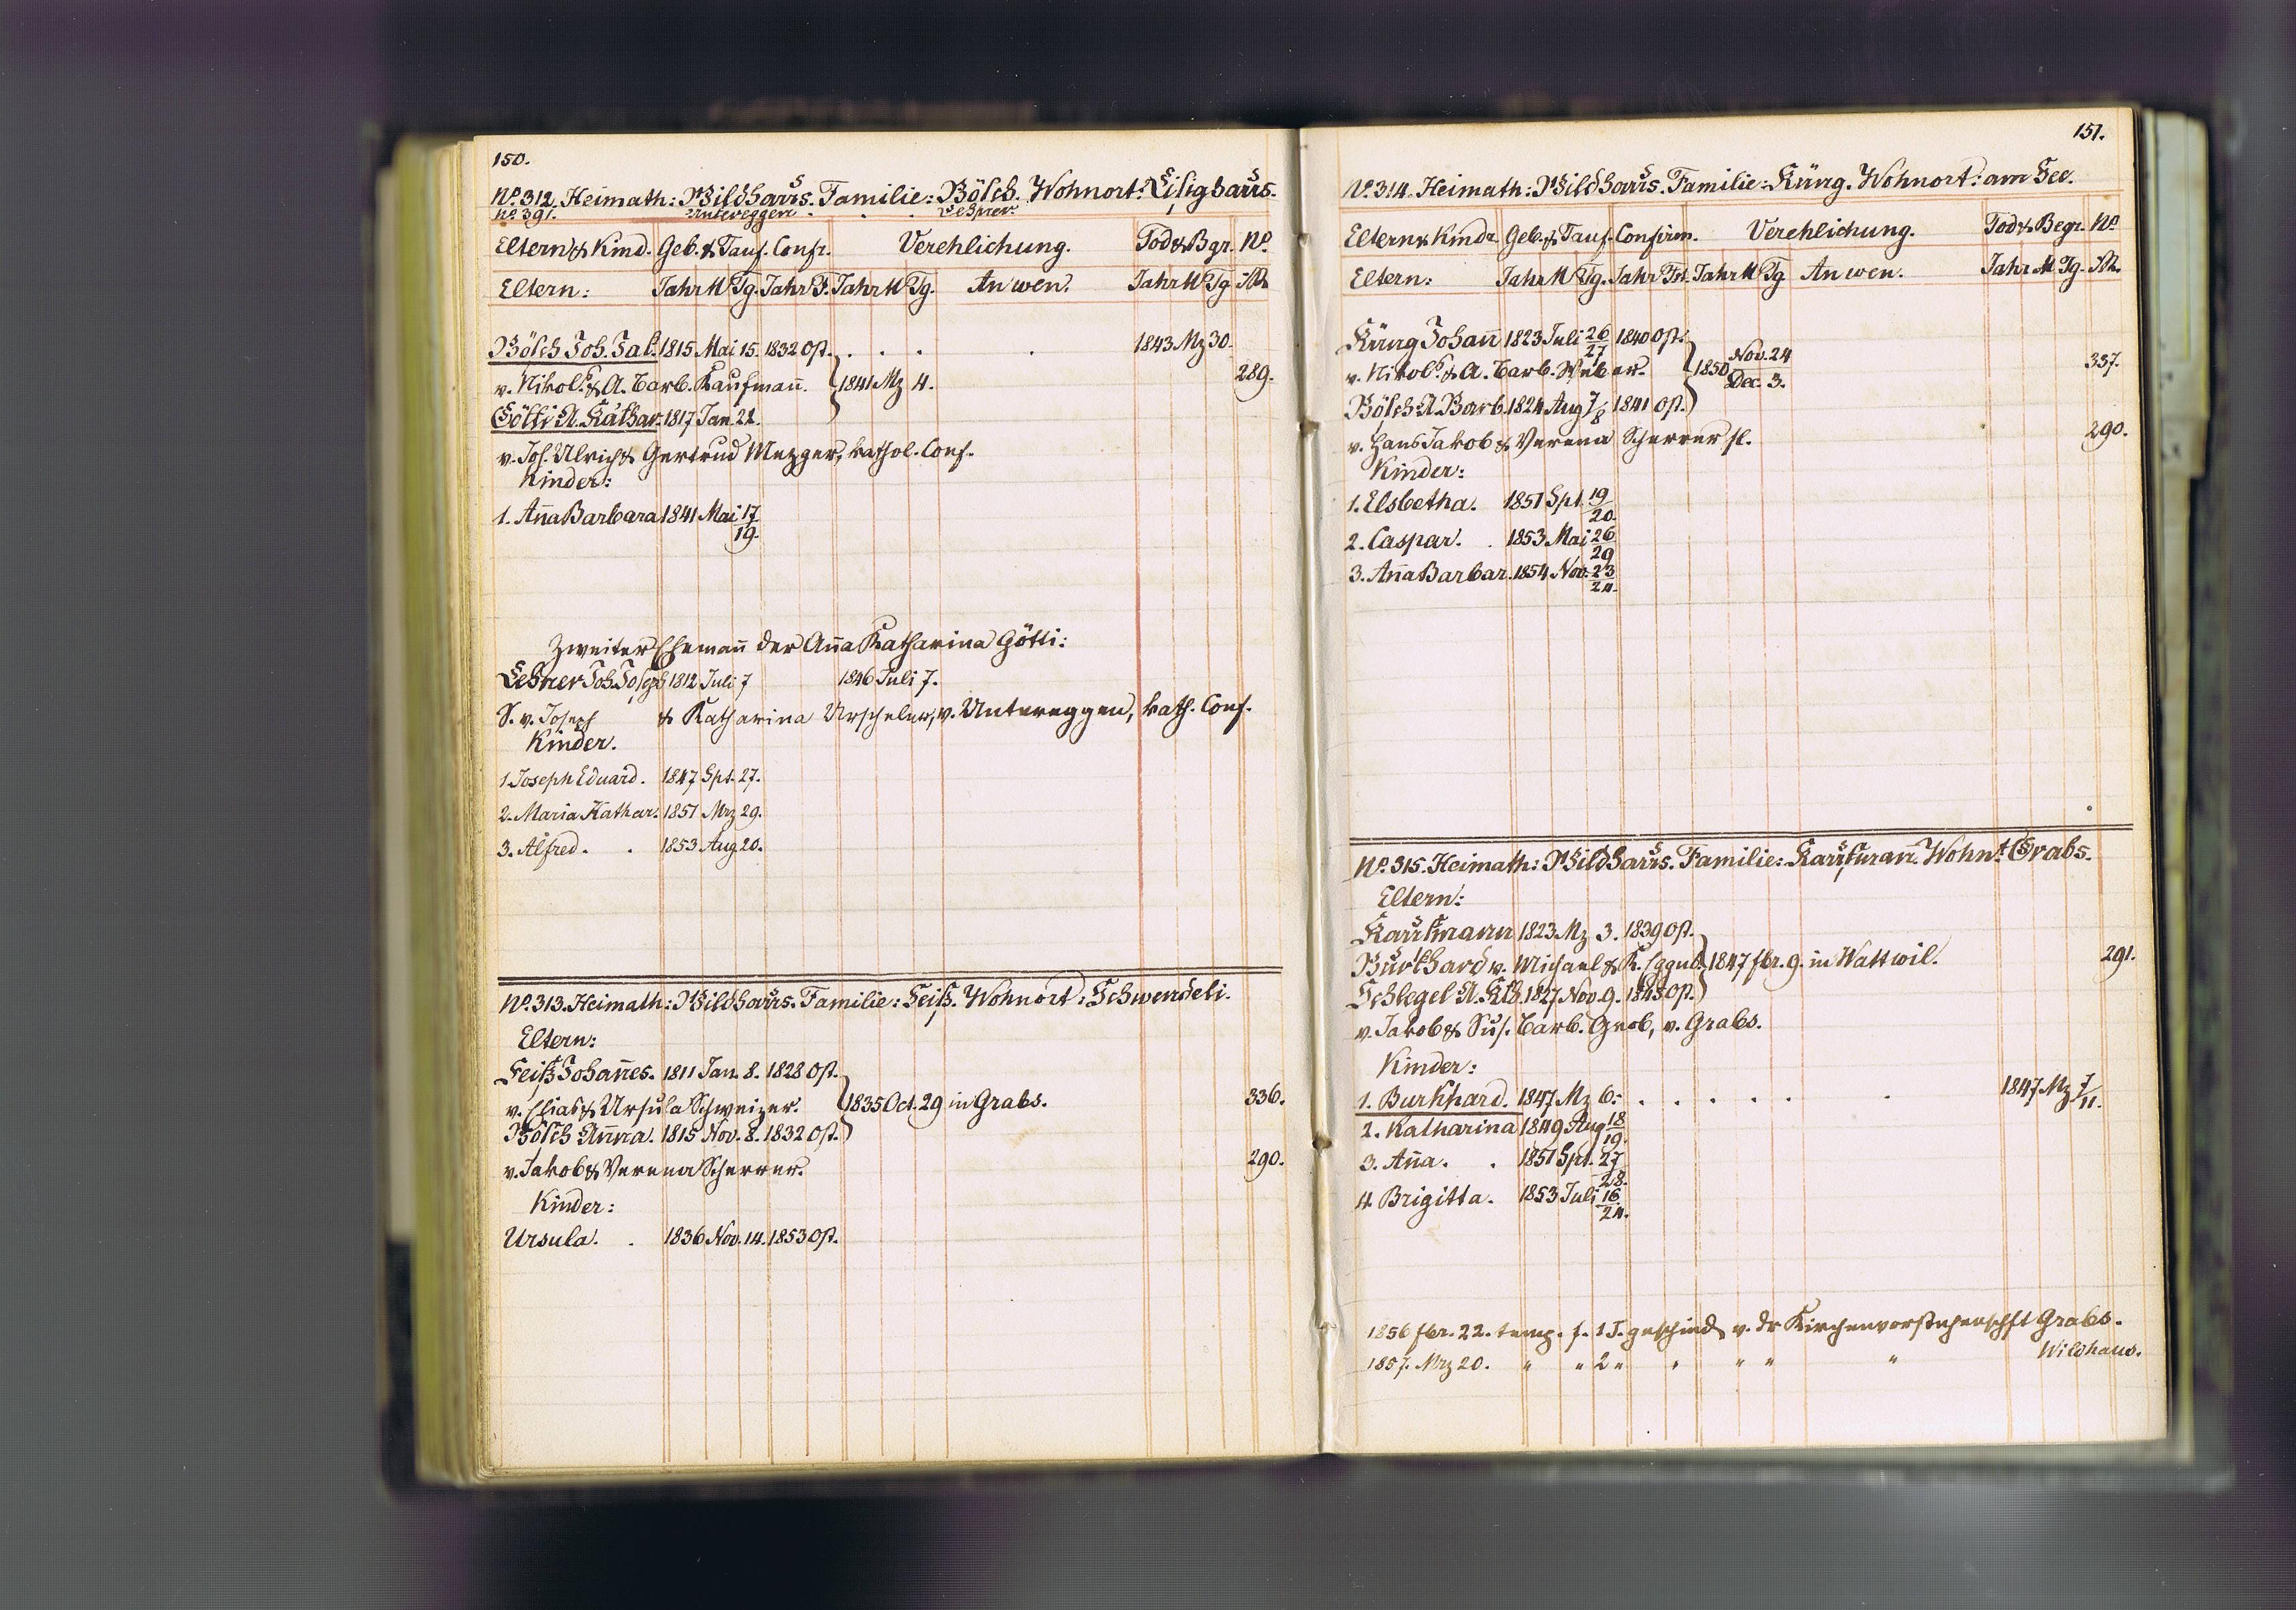 150.
No. 312. Heimath: Wildhaus. Familie: Bösch. Wohnort: Lisighaus.
No. 391. Untereggen . . . Lehner.
Eltern & Kind. Geb. & Tauf. Conf. Verehlichung. Tod & Bgr. No.
Eltern: Jahr M Tg. Jahr F. Jahr M Tg. An wen. Jahr M Tg
Bösch Joh. Jak. 1815 Mai 15. 1832 Ost. . . . . 1843 Mz 30.
v. Nikol. & A. Barb. Kaufman̄. 1841 Mz 4. 289.
Götti A. Kathar. 1817 Jan. 22.
v. Joh. Ulrich & Gertrud Mezger, kathol. Conf.
Kinder:
1. An̄a Barbara 1841 Mai 17/19.
Zweiter Eheman̄ der An̄a Katharina Götti:
Lehner Joh. Joseph 1812 Juli 7 1846 Juli 7.
S. v. Joseph & Katharina Urscheler, v. Untereggen, kath. Conf.
Kinder.
1. Joseph Eduard. 1847 Spt. 27.
2. Maria Kathar. 1851 Mrz 29.
3. Alfred. . 1853 Aug 20.
No. 313. Heimath: Wildhaus. Familie: Feiß. Wohnort: Schwendeli.
Eltern:
Feiß Johan̄es. 1811 Jan. 8. 1828 Ost.
v. Elias & Ursula Schweizer. 1835 Oct. 29 in Grabs. 336.
Bösch An̄na. 1815 Nov. 8. 1832 Ost.
v. Jakob & Verena Scherrer. 290.
Kinder:
Ursula. . 1836 Nov. 14. 1853 Ost.
151.
No. 314. Heimath: Wildhaus. Familie: Küng. Wohnort: am See.
Eltern & Kindr. Geb. & Tauf. Confirm. Verehlichung. Tod & Begr. No
Eltern: Jahr M Tg. Jahr Fst. Jahr M Tg An wen. Jahr M Tg.
Küng Johan̄ 1823 Juli 26/27 1840 Ost.
v. Nikol. & A. Barb. Weber. 1850 Nov. 24/Dec. 3. 337.
Bösch A. Barb. 1824 Aug 7/8 1841 Ost.
v. Hans Jakob & Verena Scherrer sl. 290.
Kinder:
1. Elsbetha. 1851 Spt. 19/20.
2. Caspar. . 1853 Mai 26/29
3. An̄a Barbar. 1854 Nov. 23/24.
No. 315. Heimath: Wildhaus. Familie: Kaufman̄. Wohnt. Grabs.
Eltern:
Kaufmann 1823 Mz 3. 1839 Ost.
Burkhard v. Michael & K. 1847 fbr. 9. in Wattwil. 291.
Schlegel A. Kth. 1827 Nov. 9. 1843 Ost.
v. Jakob & Sus. Barb. Grob, v. Grabs.
Kinder:
1. Burkhard. 1847 Mz 6. . . . . . . 1847 Mz 7/11.
2. Katharina 1849 Aug 18/19.
3. An̄a. . 1851 Spt. 27/28.
4. Brigitta. 1853 Juli 16/24.
1856 fbr. 22. temp. f. 1 J. geschied. v. dr Kirchenvorsteherschft Grabs.
1857. Mrz 20. " " 2 " " " " " Wildhaus.